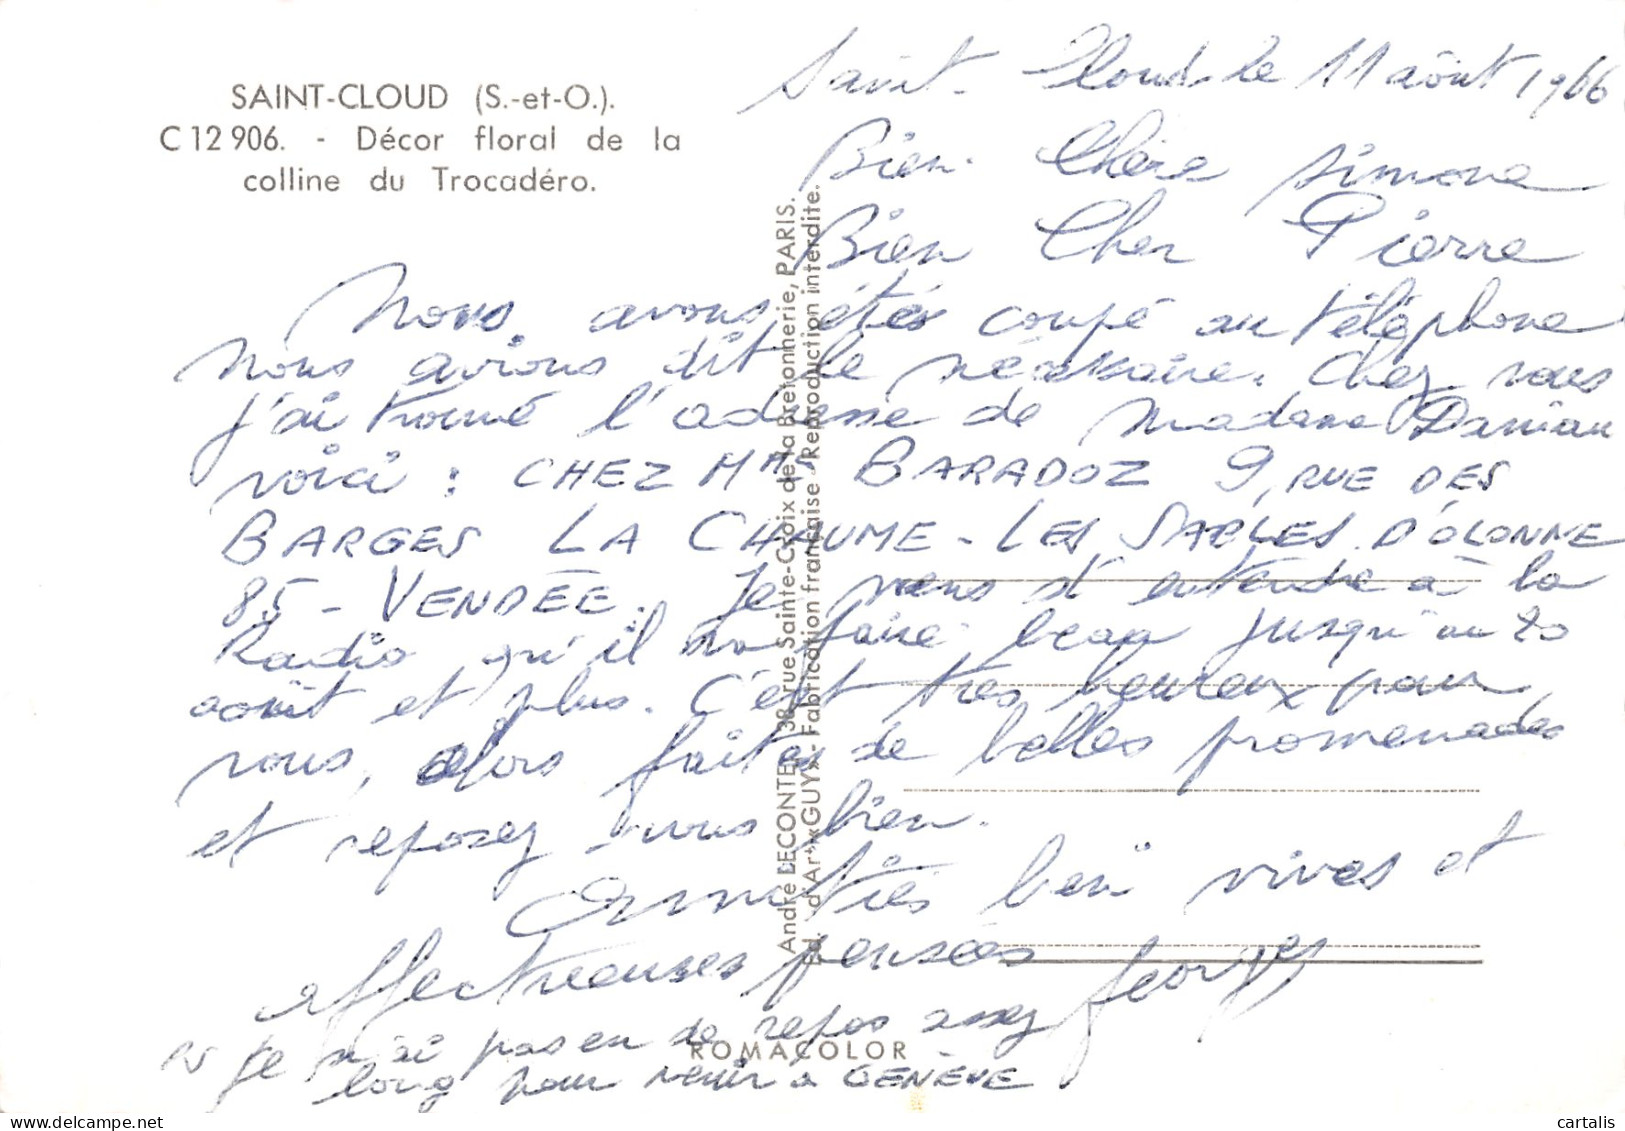 SAINT-CLOUD (S.-et-O.).
C 12 906. - Décor floral de la
colline du Trocadéro.
Saint-Cloud le 11 août 1966
Bien Chère Simone
Bien Cher Pierre
Nous avons étés coupé au téléphone
nous avions dit le nécessaire. Chez vous
j'ai trouvé l'adresse de Madame
voici : CHEZ Mme BARADOZ 9, RUE DES
BARGES LA CHAUME - LES SABLES D'OLONNE
85 - VENDÉE. Je viens d'entendre à la
Radio qu'il va faire beau jusqu'au 20
août et plus. C'est très heureux pour
vous, alors faites de belles promenades
et reposez vous bien.
Amitiés bien vives et
affectueuses pensées Georges
PS Je n'ai pas eu de repos assez
long pour venir à GENÈVE
André LECONTE, 38, rue Sainte-Croix de la Bretonnerie, PARIS.
Ed. d'Art «GUY» Fabrication française - Reproduction interdite.
ROMACOLOR
www.delcampe.net
cartalis